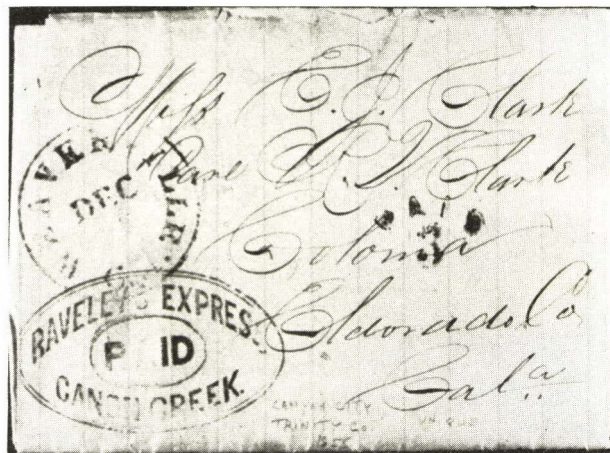 Miss C. J. Clark
Care
Clark
Coloma
Eldorado Co
Cala
WEAVERVILLE
DEC
PAID
RAVELEY'S EXPRESS
PAID
CANON CREEK.
CANYON CITY
TRINITY CO